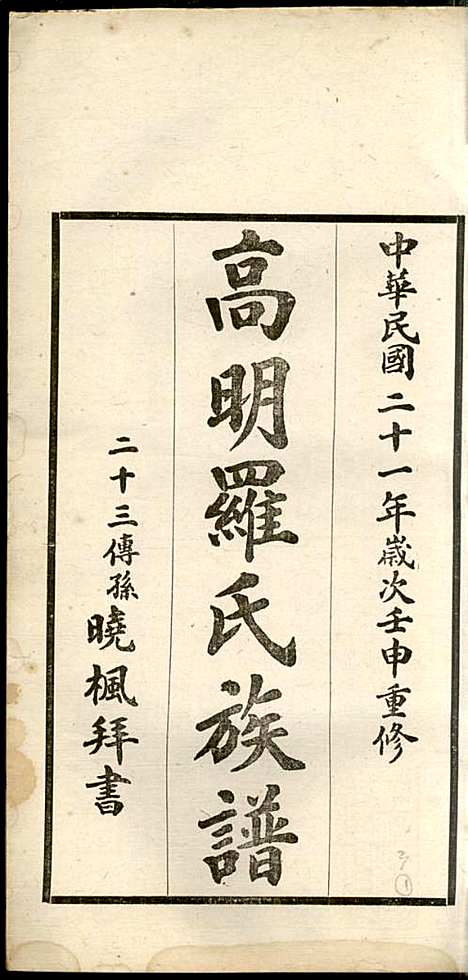 中華民國二十一年歲次壬申重修
高明羅氏族譜
二十三傳孫曉楓拜書
3
1